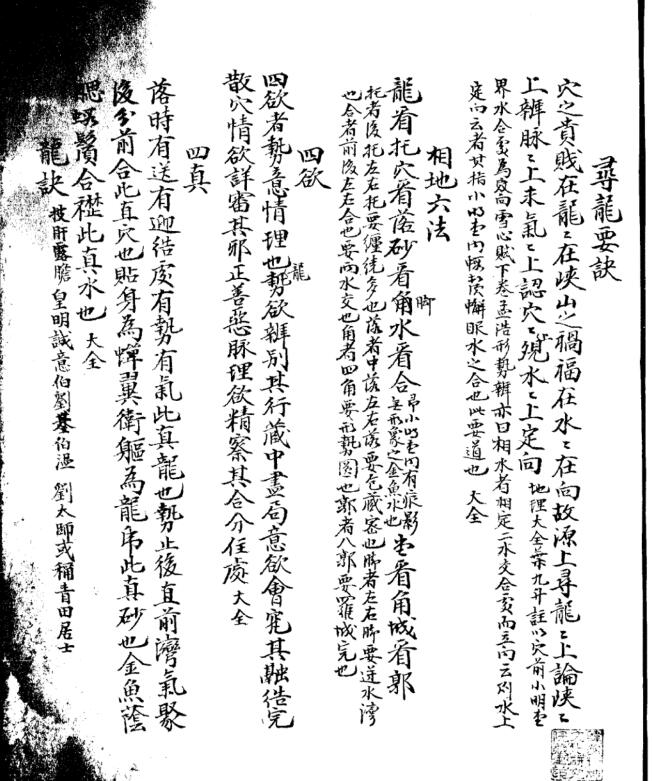 尋龍要訣
穴之貴賤在龍〻在峽山之禍福在水〻在向故源上尋龍〻上論峽〻
上辨脉〻上來氣〻上認穴〻現水〻上定向 地理大全葉九升註以穴前小明堂
界水合處為 雪心賦下卷孟浩形勢辨亦曰相水者相定二水交合處而立向云則水上
定向云者其指小明堂内 眼水之合也此要道也 大全
相地六法
龍看托穴看落砂看角脚水看合 即小明堂内有痕影無形象之金魚水也 堂看角城看郭
托者後托左右托要纏繞多也落者中落左右落要包藏密也脚者左右脚要逆水灣
也合者前後左右合也要両水交也角者四角要形勢圓也郭者八郭要羅城完也
四欲
四欲者勢意情理也龍勢欲辨别其行藏中盡局意欲會究其融結完
散穴情欲詳審其邪正善惡脉理欲精察其合分住處 大全
四真
落時有送有迎結處有勢有氣此真龍也勢止後直前灣氣聚
後分前合此真穴也貼身為蟬翼衛軀為龍虎此真砂也金魚蔭
腮蝦鬚合襟此真水也 大全
龍訣 披肝露膽 皇明誠意伯劉基伯温 劉太師或稱青田居士